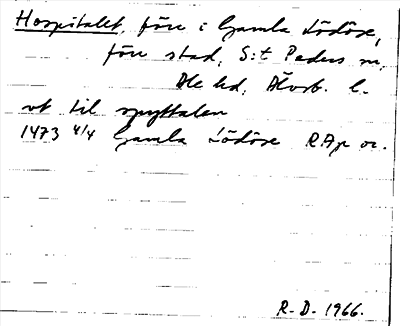 Hospitalet, före i Gamla Lödöse,
före stad, S:t Peders sn,
Ale hd, Älvsb. l.
vt til spyttalen
1473 4/4 Gamla Lödöse RAp or.
R.D. 1966.